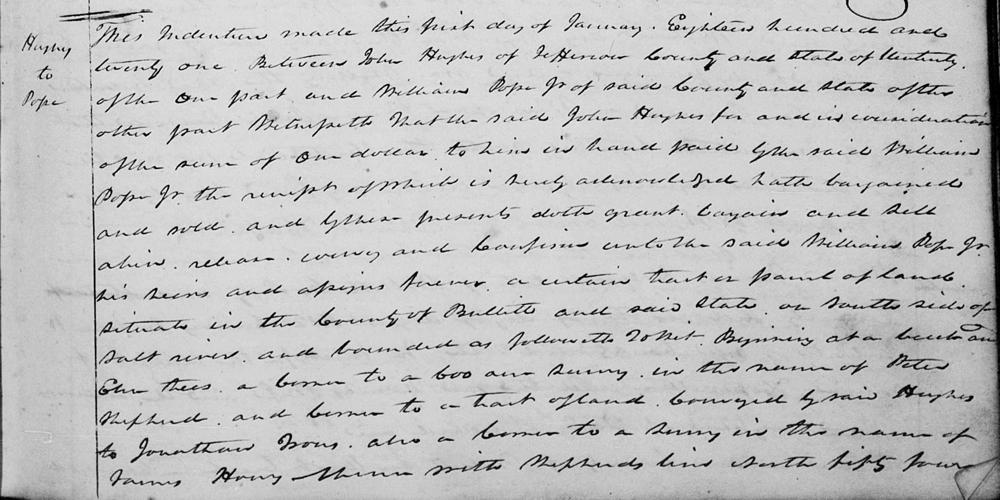 Hughes
to
Pope
This Indenture made this first day of January. Eighteen hundred and
twenty one. Between John Hughes of Jefferson County and State of Kentucky.
of the One part. and William Pope Jr of said County and State of the
other part Witnesseth That the said John Hughes for and in consideration
of the sum of One dollar. to him in hand paid by the said William
Pope Jr. the receipt of Which is hereby acknowledged hath bargained
and sold. and by these presents doth grant. bargain and Sell
alien. release. convey and Confirm unto the said William Pope Jr.
his heirs and assigns forever. a certain tract or parcel of land.
situate in the County of Bullitt and said State on South side of
Salt river. and bounded as followeth To Wit. Beginning at a beech and
Elm trees. a Corner to a 600 acre Survey. in the name of Peter
Shepherd. and Corner to a tract of land. Conveyed by said Hughes
to Jonathan. also a Corner to a Survey in the name of
James thence with Shepherds line North fifty four